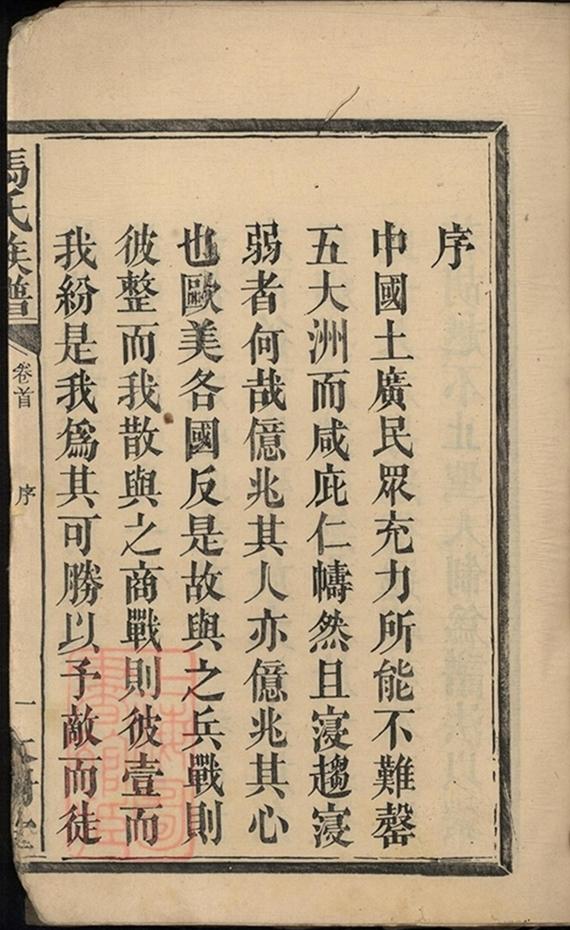 序
中國土廣民眾充力所能不難罄
五大洲而咸庇仁幬然且寖趨寖
弱者何哉億兆其人亦億兆其心
也歐美各國反是故與之兵戰則
彼整而我散與之商戰則彼壹而
我紛是我爲其可勝以予敵而徒
馮氏族譜
卷首
序
一